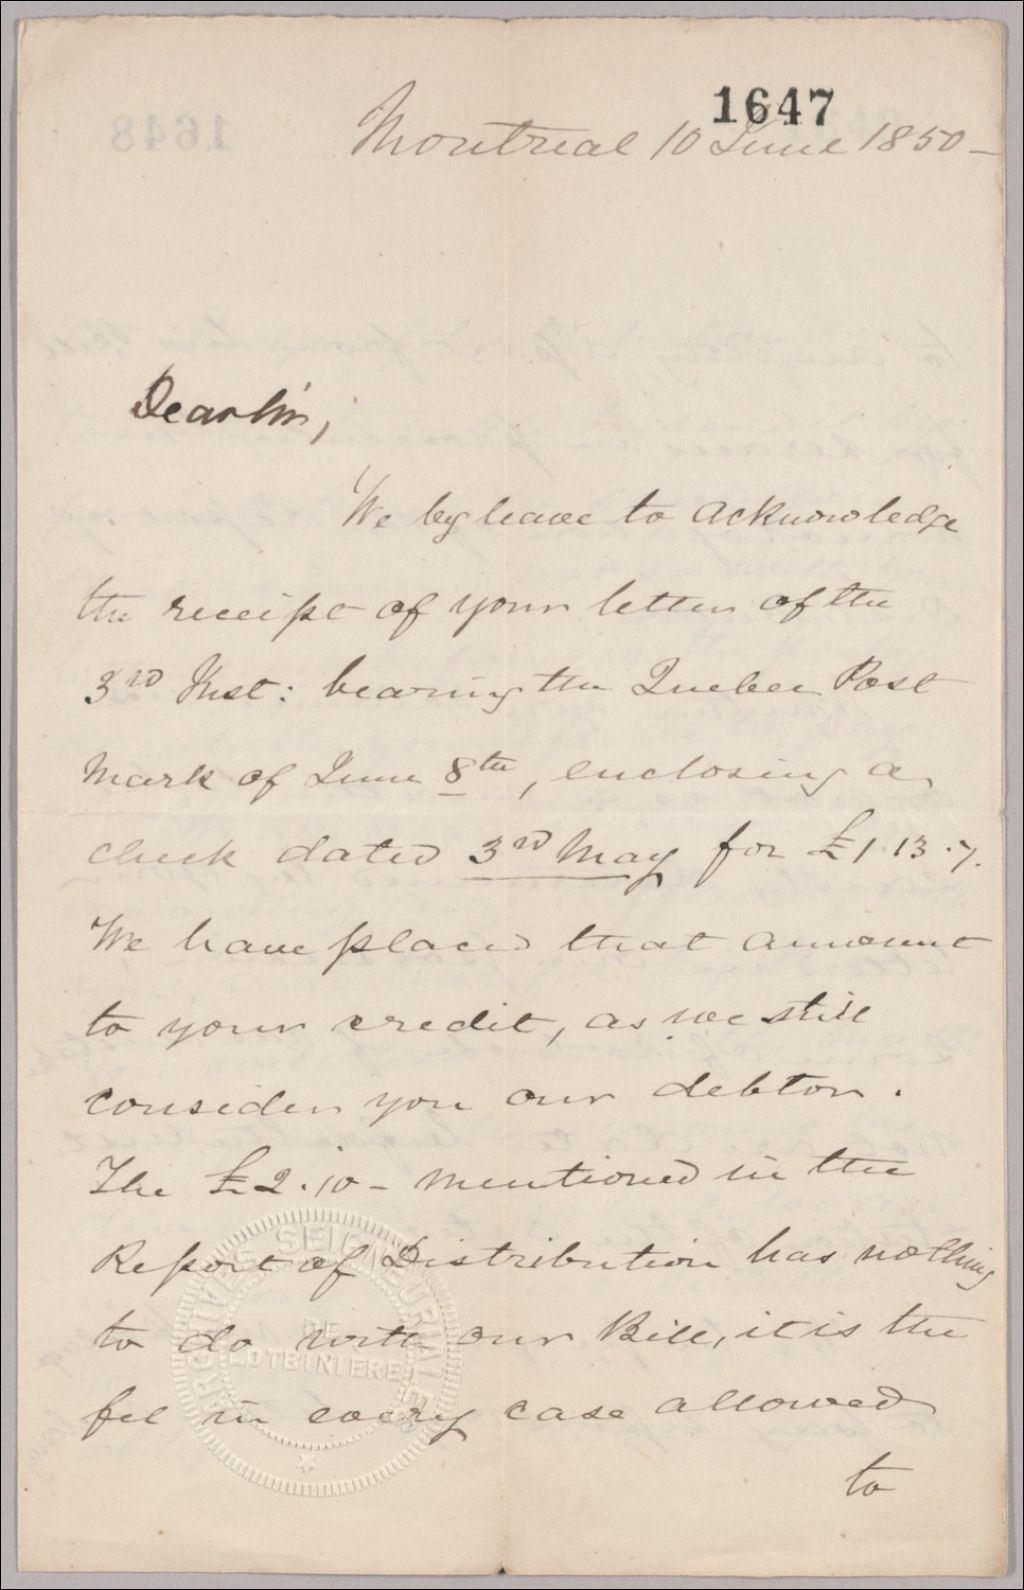 1647
Montreal 10 June 1850 -
Dear Sir,
We beg leave to acknowledge
the receipt of your letter of the
3rd Inst: bearing the Quebec Post
Mark of June 8th, enclosing a
check dated 3rd May for £1.13.7.
We have placed that amount
to your credit, as we still
consider you our debtor.
The £2.10 - mentioned in the
Report of Distribution has nothing
to do with our Bill, it is the
fee in every case allowed
to
ARCHIVES SEIGNEURIALES
DE
LOTBINIERE
1648